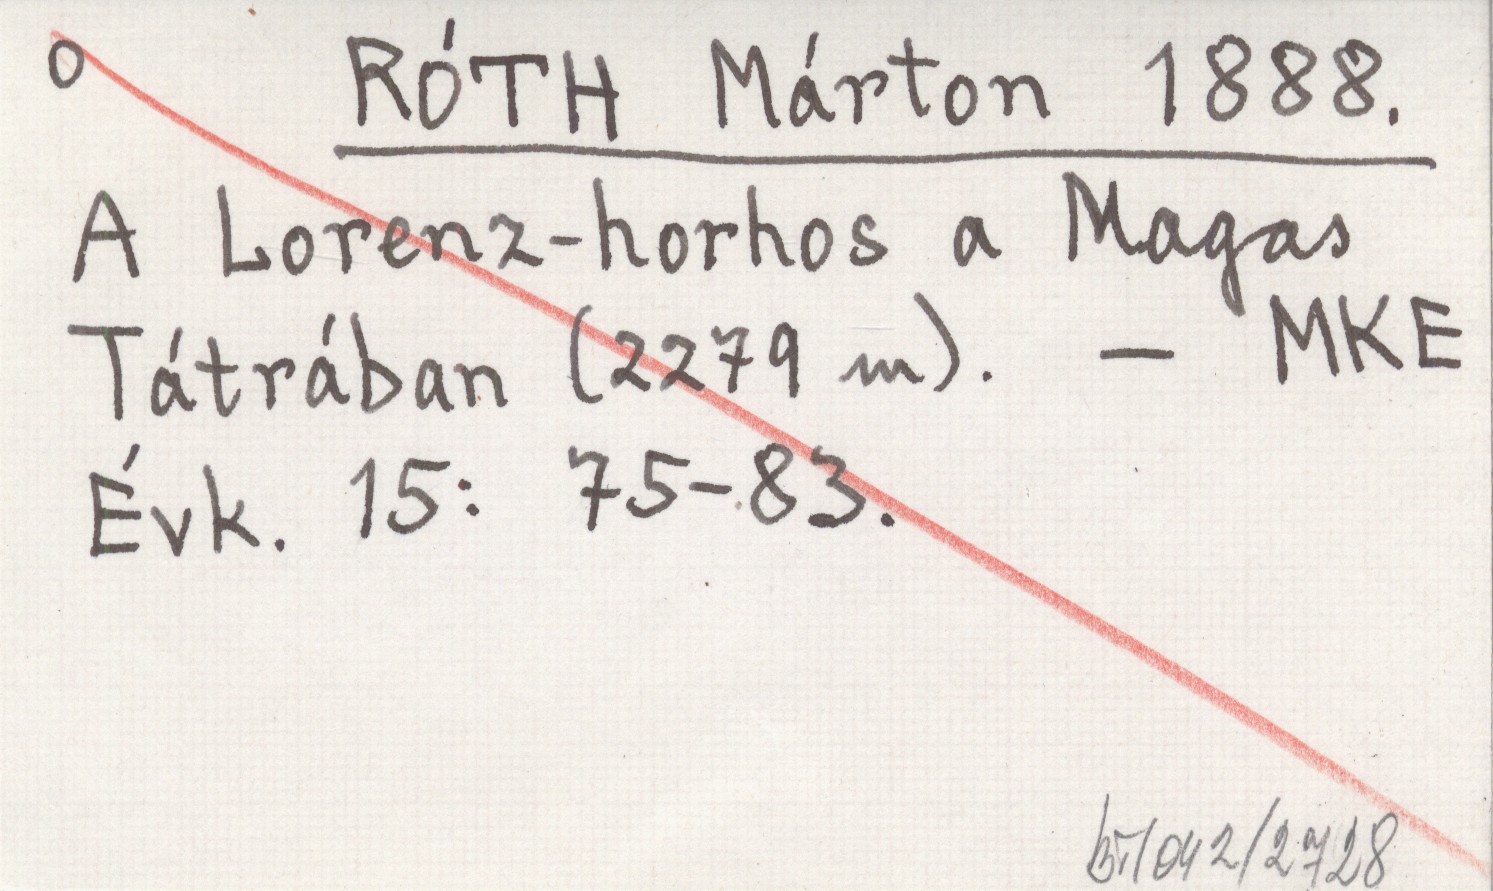 o RÓTH Márton 1888.
A Lorenz-horhos a Magas
Tátrában (2279 m). — MKE
Évk. 15: 75-83.
bT/042/2728